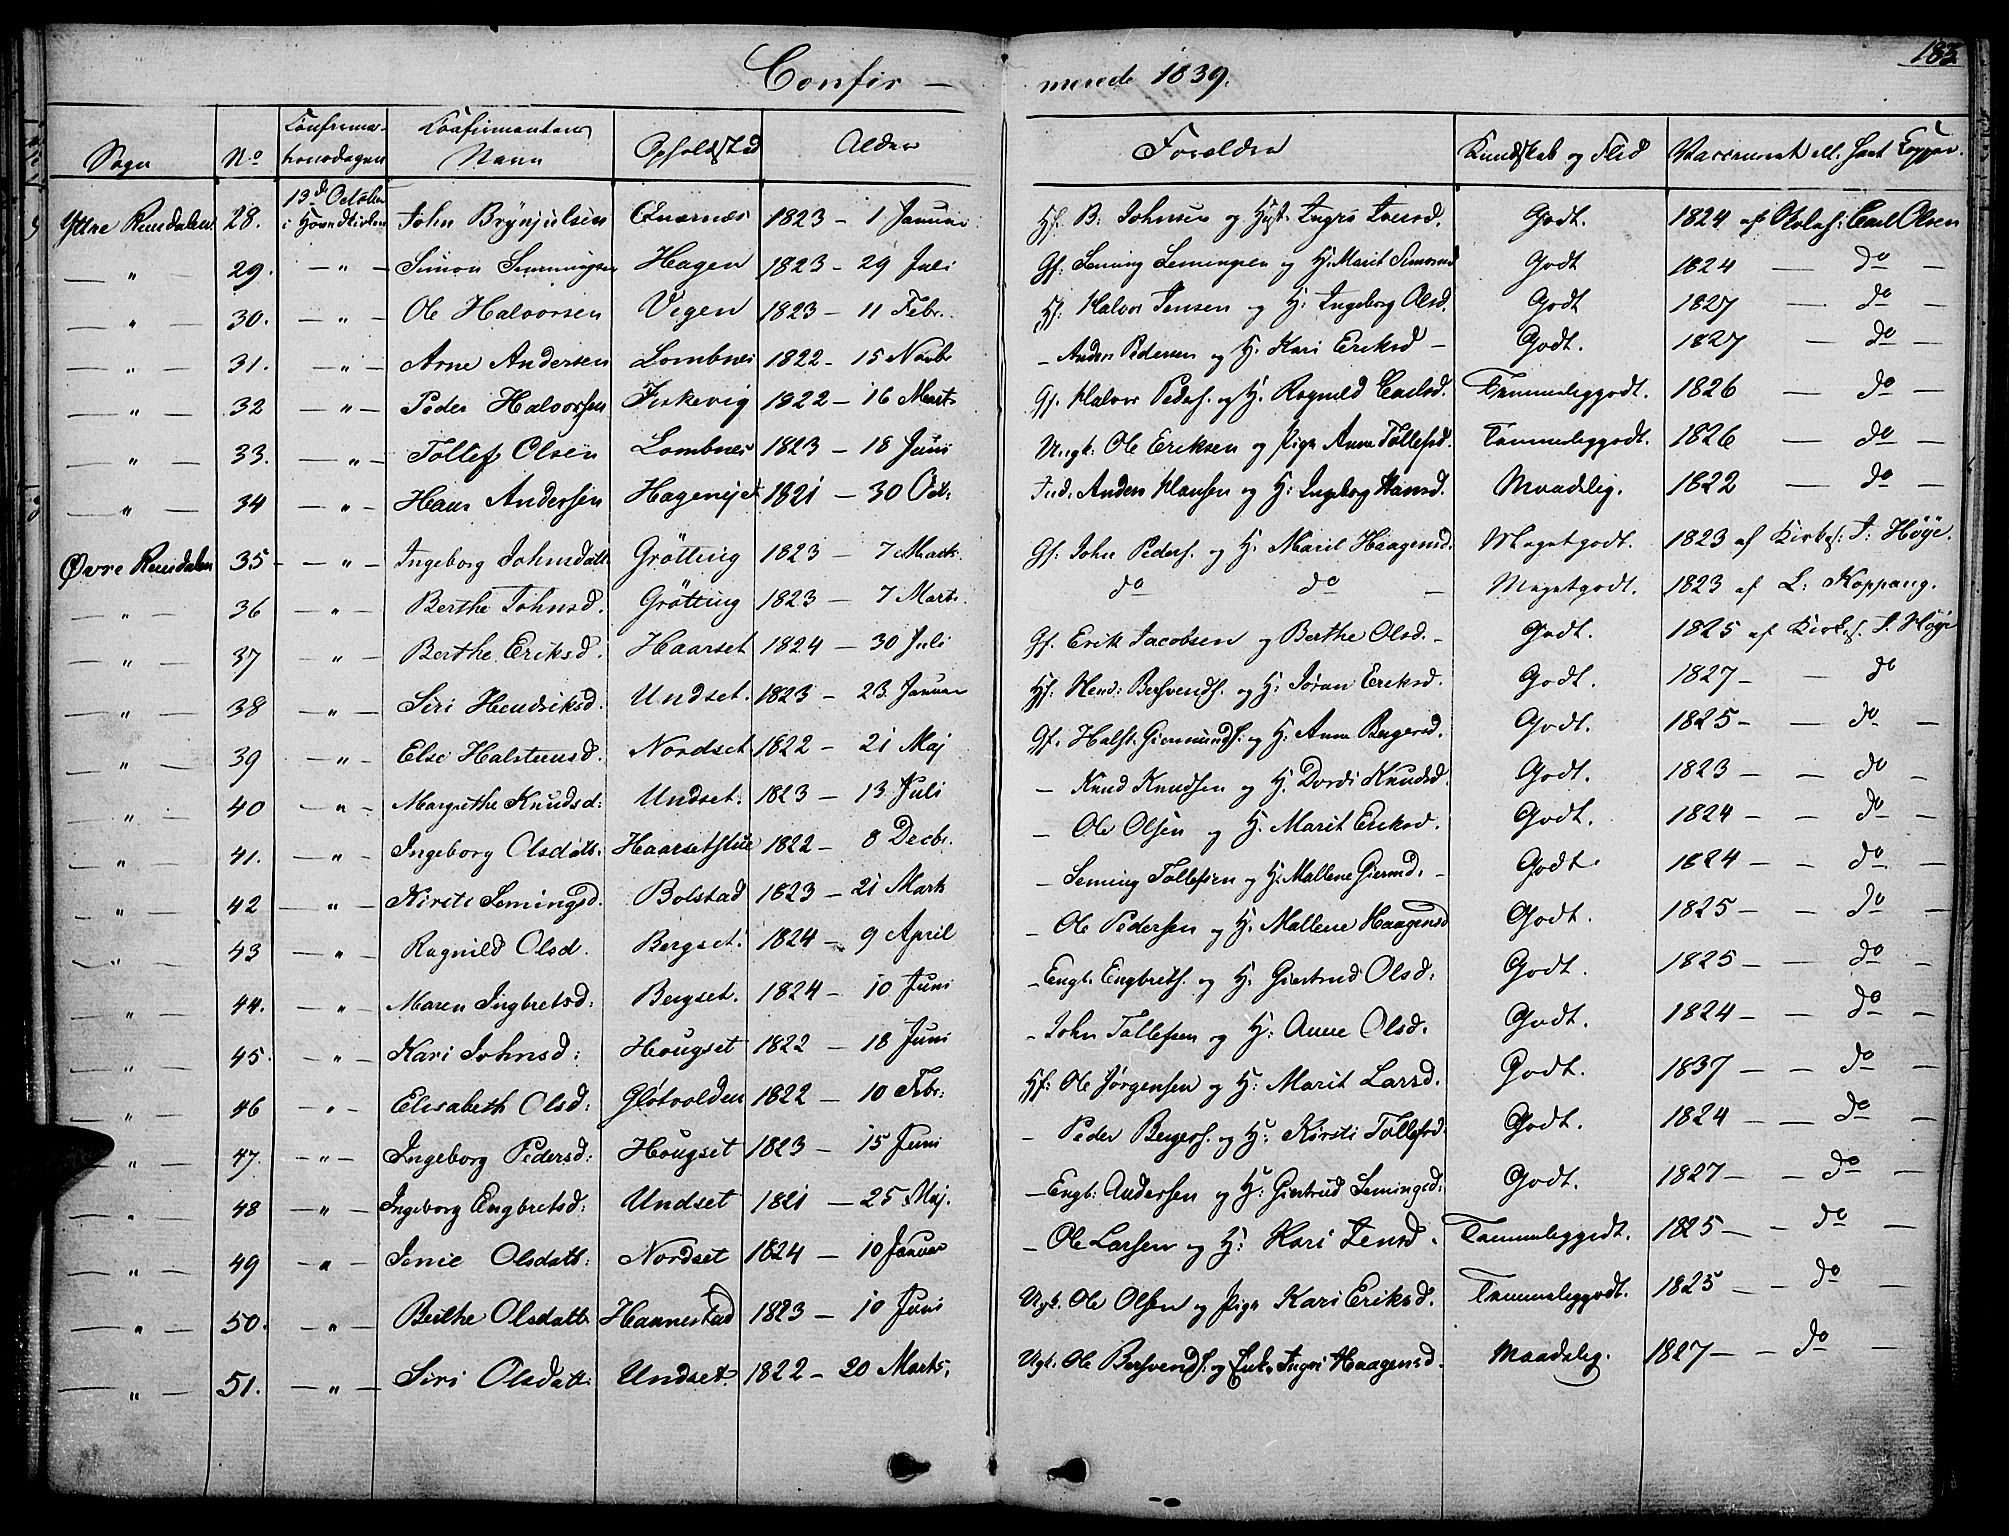 183
Confir- merede 1839.
Sogn No Confirmationsdagen Confirmantens Navn Opholdsted Alder Forældre Kundskab og Flid Vaccineret ell. havt Kopper.
Yttre Rendalen 28. 13de October i Hovedkirken John Brynjulsen Qværnes 1823 - 1 Januar Hf. B. Johnsen og Hust. Ingri Iversd. Godt. 1824 af Carl Olsen
— " — 29. — " — Simon Semmingsen Hagen 1823 - 29 Juli Gf. Seming Semingsen og H. Marit Simonsd Godt 1824 — do —
— " — 30. — " — Ole Halvorsen Vegen 1823 - 11 Febr. Hf. Halvor Jensen og H: Ingeborg Olsd. Godt 1827 — do —
— " — 31. — " — Arne Andersen Lombnes 1822 - 15 Novbr — Anders Pedersen og H. Kari Eriksd — Godt. 1827 — do —
— " — 32 — " — Peder Halvorsen Fiskevig 1822 - 16 Marts Gf. Halvor Peders. og H. Ragnild Carlsd. Temmeliggodt. 1826 — do —
— " — 33. — " — Tollef Olsen Lombnes 1823 - 18 Juni Ungk: Ole Eriksen og Pige Anne Tollefsd. Temmeliggodt. 1826 — do —
— " — 34 — " — Hans Andersen Hagenejet 1821 - 30 Oct: Ind. Anders Hansen og H: Ingeborg Hansd. Maadelig. 1822 — do —
Øvre Rendalen 35 - — " — Ingeborg Johnsdatt. Grötting 1823 - 7 Marts Gf. John Peders. og H. Marit Haagensd. Megetgodt. 1823 af Kirkes: I: Høye.
— " — 36 — " — Berthe Johnsd. Grötting 1823 - 7 Marts do do — Megetgodt. 1823 af L: Koppang.
— " — 37 — " — Berthe Eriksd. Haarset 1824 - 30 Juli Gf. Erik Jacobsen og Berthe Olsd. - Godt. 1825 af Kirkes. I. Høye
— " — 38 — " — Siri Hendriksd. Undset. 1823 - 23 Januar Hf: Hend: Bersvends. og H: Jøran Eriksd. Godt. 1827 - — do
— " — 39 — " — Else Halstensd. Nordset 1822 - 21 Maj Gf. Halst. Giermunds. og H. Anne Bergersd. Godt. 1825 - — do —
— " — 40 — " — Margrethe Knudsd: Undset. 1823 - 13 Juli — Knud Knudsen og H. Dordi Knudsd. Godt. 1823 — — do —
— " — 41. — " — Ingeborg Olsdatt: Haarsetstue 1822 - 8 Decbr. — Ole Olsen og H. Marit Eriksd. Godt. 1824 — — do —
— " — 42 — " — Kirsti Semingsd. Bolstad 1823 - 21 Marts — Seming Tollefsen og H. Mallene Gierud. - Godt. 1824 — — do —
— " — 43 — " — Ragnild Olsd. Bergset. 1824 - 9 April — Ole Pedersen og H. Mallene Haagensd Godt. 1825 — — do —
— " — 44. — " — Maren Ingbretsd: Bergset. 1824 - 10 Juni — Engb. Engbrets. og H. Giertrud Olsd. Godt. 1825 — — do —
— " — 45. — " — Kari Johnsd: Hougset 1822 - 18 Juni — John Tollefsen og H: Anne Olsd. Godt. 1824 — — do —
— " — 46 — " — Elisabeth Olsd: Gløtvolden 1822 - 10 Febr: Hf: Ole Jørgensen og H: Marit Larsd. Godt. 1837 — — do —
— " — 47. — " — Ingeborg Pedersd: Hougset 1823 - 15 Juni — Peder Bergers. og H: Kirsti Tollefsd. Godt. 1824 — — do —
— " — 48 — " — Ingeborg Engbretsd: Undset 1821 - 25 Maj. — Engb: Andersen og H: Giertrud Semingsd: Godt. 1827 — — do —
— " — 49 — " — Jenie Olsdatt: Nordset 1824 - 10 Januar — Ole Larsen og H: Kari Jensd. Temmeliggodt. 1825 — — do —
— " — 50. — " — Berthe Olsdatt: Hannestad 1823 - 10 Juni Ugk. Ole Olsen og Pige Kari Eriksd. Temmeliggodt. 1825 — — do —
— " — 51. — " — Siri Olsdatt: Undset. 1822 - 20 Marts. Ugk: Ole Bersvends. og Enke Ingri Haagensd. Maadelig. 1827 — — do —